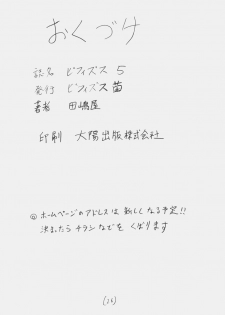 おくづけ
誌名 ビフィズス 5
発行 ビフィズス菌
著者 田嶋屋
印刷 大陽出版株式会社
◎ホームページのアドレスは新しくなる予定!!
決まったらチラシなどをくばります
(25)